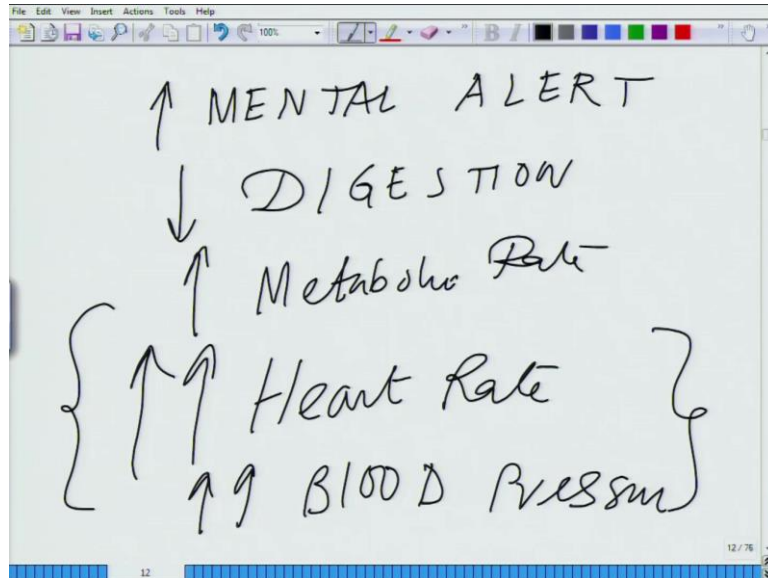 File Edit View Insert Actions Tools Help
100%
B I
↑ MENTAL ALERT
↓ DIGESTION
↑ Metabolic Rate
↑ ↑ Heart Rate
↑ ↑ BlOOD Pressur
12/76
12